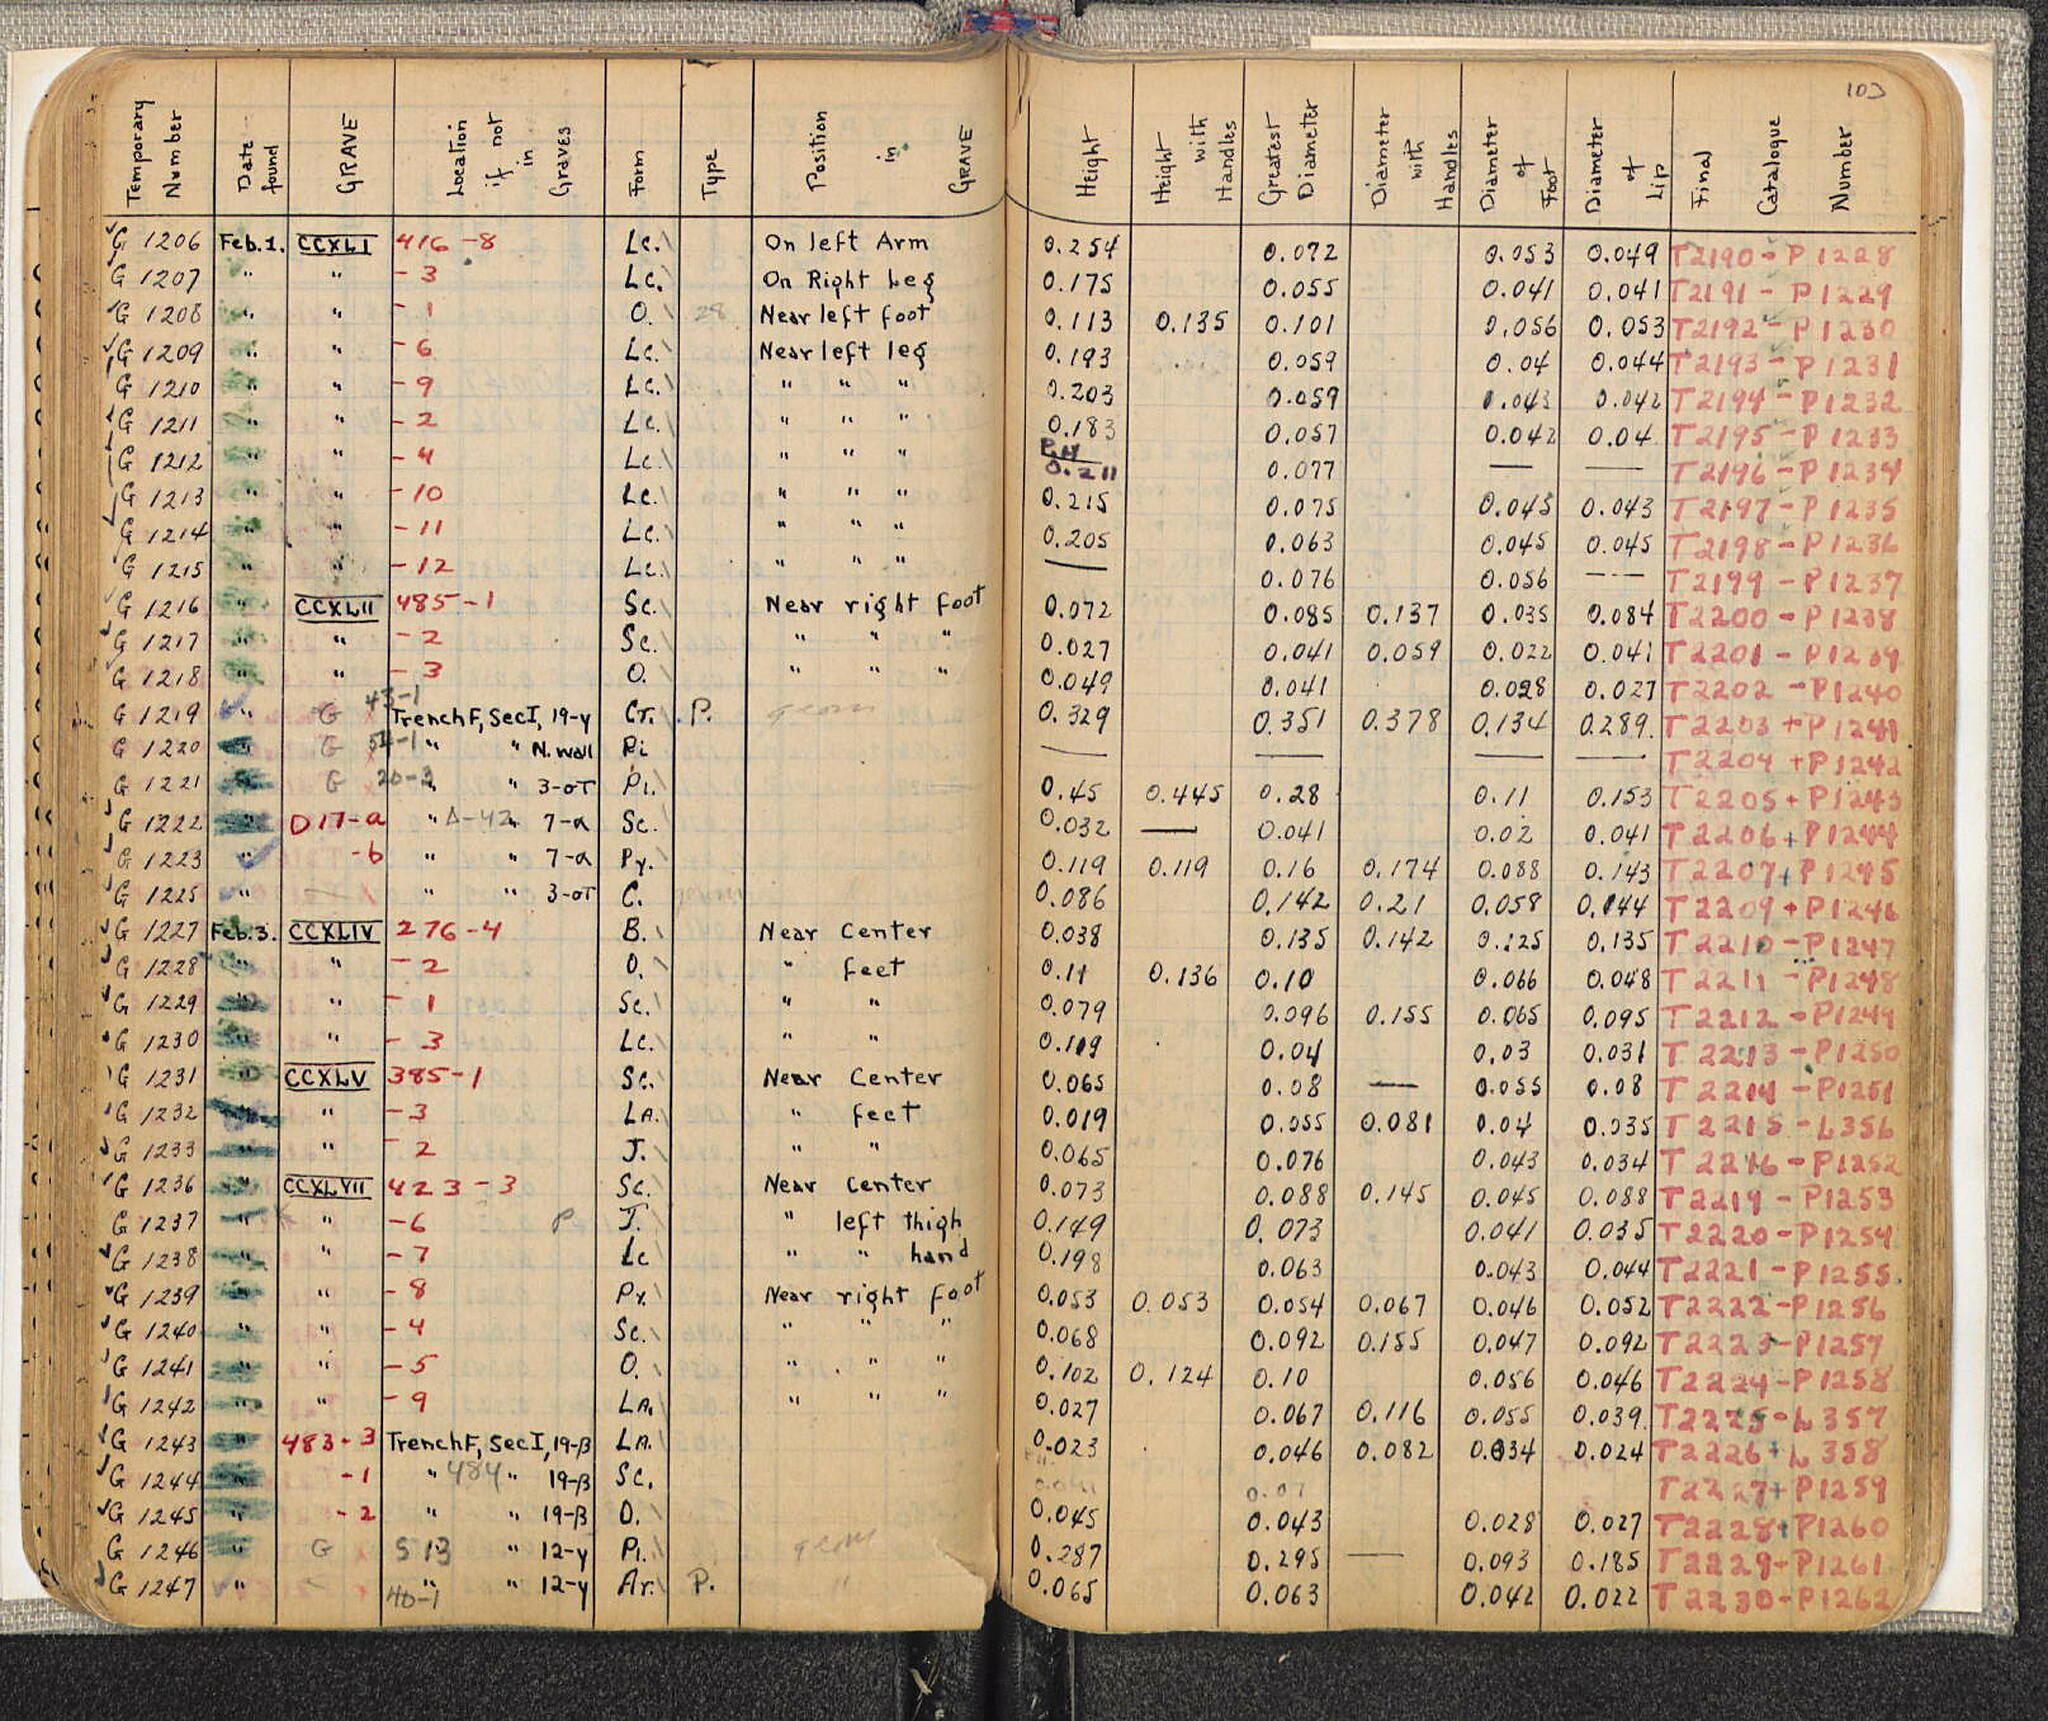 103
Temporary Number | Date found | GRAVE | Location if not in Graves | Form | Type | Position in GRAVE | Height | Height with Handles | Greatest Diameter | Diameter with Handles | Diameter of Foot | Diameter of Lip | Final Catalogue Number
G 1206 Feb. 1. CCXLI 416 - 8 Lc. On left Arm 0.254 0.072 0.053 0.049 T2190 - P1228
G 1207 " " - 3 Lc. On Right Leg 0.175 0.055 0.041 0.041 T2191 - P1229
G 1208 " " - 1 O. 28 Near left foot 0.113 0.135 0.101 0.056 0.053 T2192 - P1230
G 1209 " " - 6 Lc. Near left leg 0.193 0.059 0.04 0.044 T2193 - P1231
G 1210 " " - 9 Lc. " " " 0.203 0.059 0.043 0.042 T2194 - P1232
G 1211 " " - 2 Lc. " " " 0.183 0.057 0.042 0.04 T2195 - P1233
G 1212 " " - 4 Lc. " " " P.H 0.211 0.077 — — T2196 - P1234
G 1213 " " - 10 Lc. " " " 0.215 0.075 0.045 0.043 T2197 - P1235
G 1214 " " - 11 Lc. " " " 0.205 0.063 0.045 0.045 T2198 - P1236
G 1215 " " - 12 Lc. " " " — 0.076 0.056 — T2199 - P1237
G 1216 " CCXLII 485 - 1 Sc. Near right foot 0.072 0.085 0.137 0.035 0.084 T2200 - P1238
G 1217 " " - 2 Sc. " " " 0.027 0.041 0.059 0.022 0.041 T2201 - P1239
G 1218 " " - 3 O. " " " 0.049 0.041 0.028 0.027 T2202 - P1240
G 1219 " G 43-1 Trench F, Sec I, 19-γ Cr. P. geom 0.329 0.351 0.378 0.134 0.289. T2203 + P1241
G 1220 " G 54-1 " " N. wall Pi — — — — T2204 + P1242
G 1221 " G 20-3 " " 3-στ Pi. 0.45 0.445 0.28 0.11 0.153 T2205 + P1243
G 1222 " D17-a " Δ-42 " 7-a Sc. 0.032 — 0.041 0.02 0.041 T2206 + P1244
G 1223 " -b " " 7-a Py. 0.119 0.119 0.16 0.174 0.088 0.143 T2207 + P1245
G 1225 " " " 3-στ C. 0.086 0.142 0.21 0.058 0.144 T2209 + P1246
G 1227 Feb. 3. CCXLIV 276 - 4 B. Near Center 0.038 0.135 0.142 0.125 0.135 T2210 - P1247
G 1228 " " - 2 O. " feet 0.11 0.136 0.10 0.066 0.048 T2211 - P1248
G 1229 " " - 1 Sc. " " 0.079 0.096 0.155 0.065 0.095 T2212 - P1249
G 1230 " " - 3 Lc. " " 0.119 0.04 0.03 0.031 T2213 - P1250
G 1231 " CCXLV 385 - 1 Sc. Near Center 0.065 0.08 — 0.055 0.08 T2214 - P1251
G 1232 " " - 3 LA. " feet 0.019 0.055 0.081 0.04 0.035 T2215 - L356
G 1233 " " - 2 J. " " 0.065 0.076 0.043 0.034 T2216 - P1252
G 1236 " CCXLVII 423 - 3 Sc. Near Center 0.073 0.088 0.145 0.045 0.088 T2219 - P1253
G 1237 " " - 6 P J. " left thigh 0.149 0.073 0.041 0.035 T2220 - P1254
G 1238 " " - 7 Lc " " hand 0.198 0.063 0.043 0.044 T2221 - P1255.
G 1239 " " - 8 Py. Near right foot 0.053 0.053 0.054 0.067 0.046 0.052 T2222 - P1256
G 1240 " " - 4 Sc. " " " 0.068 0.092 0.155 0.047 0.092 T2223 - P1257
G 1241 " " - 5 O. " " " 0.102 0.124 0.10 0.056 0.046 T2224 - P1258
G 1242 " " - 9 LA. " " " 0.027 0.067 0.116 0.055 0.039. T2225 - L357
G 1243 " 483 - 3 Trench F, Sec I, 19-β LA. 0.023 0.046 0.082 0.034 0.024 T2226 + L358
G 1244 " - 1 " 484 " 19-β Sc. 0.041 0.07 T2227 + P1259
G 1245 " - 2 " " 19-β O. 0.045 0.043 0.028 0.027 T2228 + P1260
G 1246 " G S 13 " 12-γ Pi. geom 0.287 0.295 — 0.093 0.185 T2229 + P1261
G 1247 " 40-1 " " 12-γ Ar. P. " 0.065 0.063 0.042 0.022 T2230 - P1262